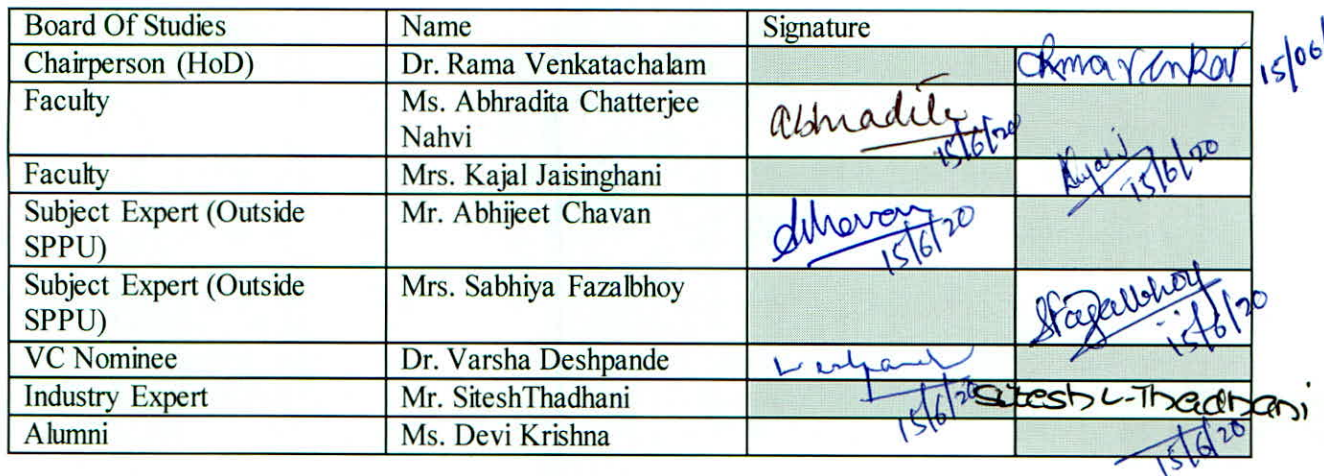 Board Of Studies Name Signature
Chairperson (HoD) Dr. Rama Venkatachalam 15/06/
Faculty Ms. Abhradita Chatterjee Abhradita
Nahvi 15/6/20
Faculty Mrs. Kajal Jaisinghani Kajal 15/6/20
Subject Expert (Outside Mr. Abhijeet Chavan
SPPU) 15/6/20
Subject Expert (Outside Mrs. Sabhiya Fazalbhoy SFazalbhoy
SPPU) 15/6/20
VC Nominee Dr. Varsha Deshpande
Industry Expert Mr. SiteshThadhani 15/6/20 Sitesh L-Thadhani
Alumni Ms. Devi Krishna 15/6/20